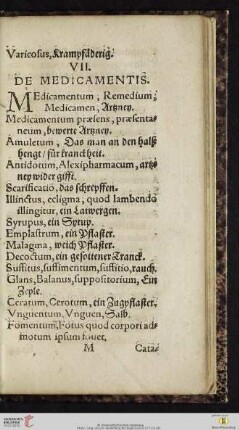 Varicosus, Krampfäderig.
VII.
DE MEDICAMENTIS.
MEdicamentum, Remedium,
Medicamen, Artzney.
Medicamentum præsens, præsenta-
neum, bewerte Artzney.
Amuletum, Das man an den halß
hengt/ für kranckheit.
Antidotum, Alexipharmacum, artz-
ney wider gifft.
Scarificatio, das schrepffen.
Illinctus, ecligma, quod lambendo
illingitur, ein Latwergen.
Syrupus, ein Syrup.
Emplastrum, ein Pflaster.
Malagma, weich Pflaster.
Decoctum, ein gesottener Tranck.
Suffitus, suffimentum, suffitio, rauch.
Glans, Balanus, suppositorium, Ein
Zeple.
Ceratum, Cerotum, ein Zugpflaster.
Vnguentum, Vnguen, Salb.
Fomentum, Fotus quod corpori ad-
motum ipsum fouet,
M Cata-